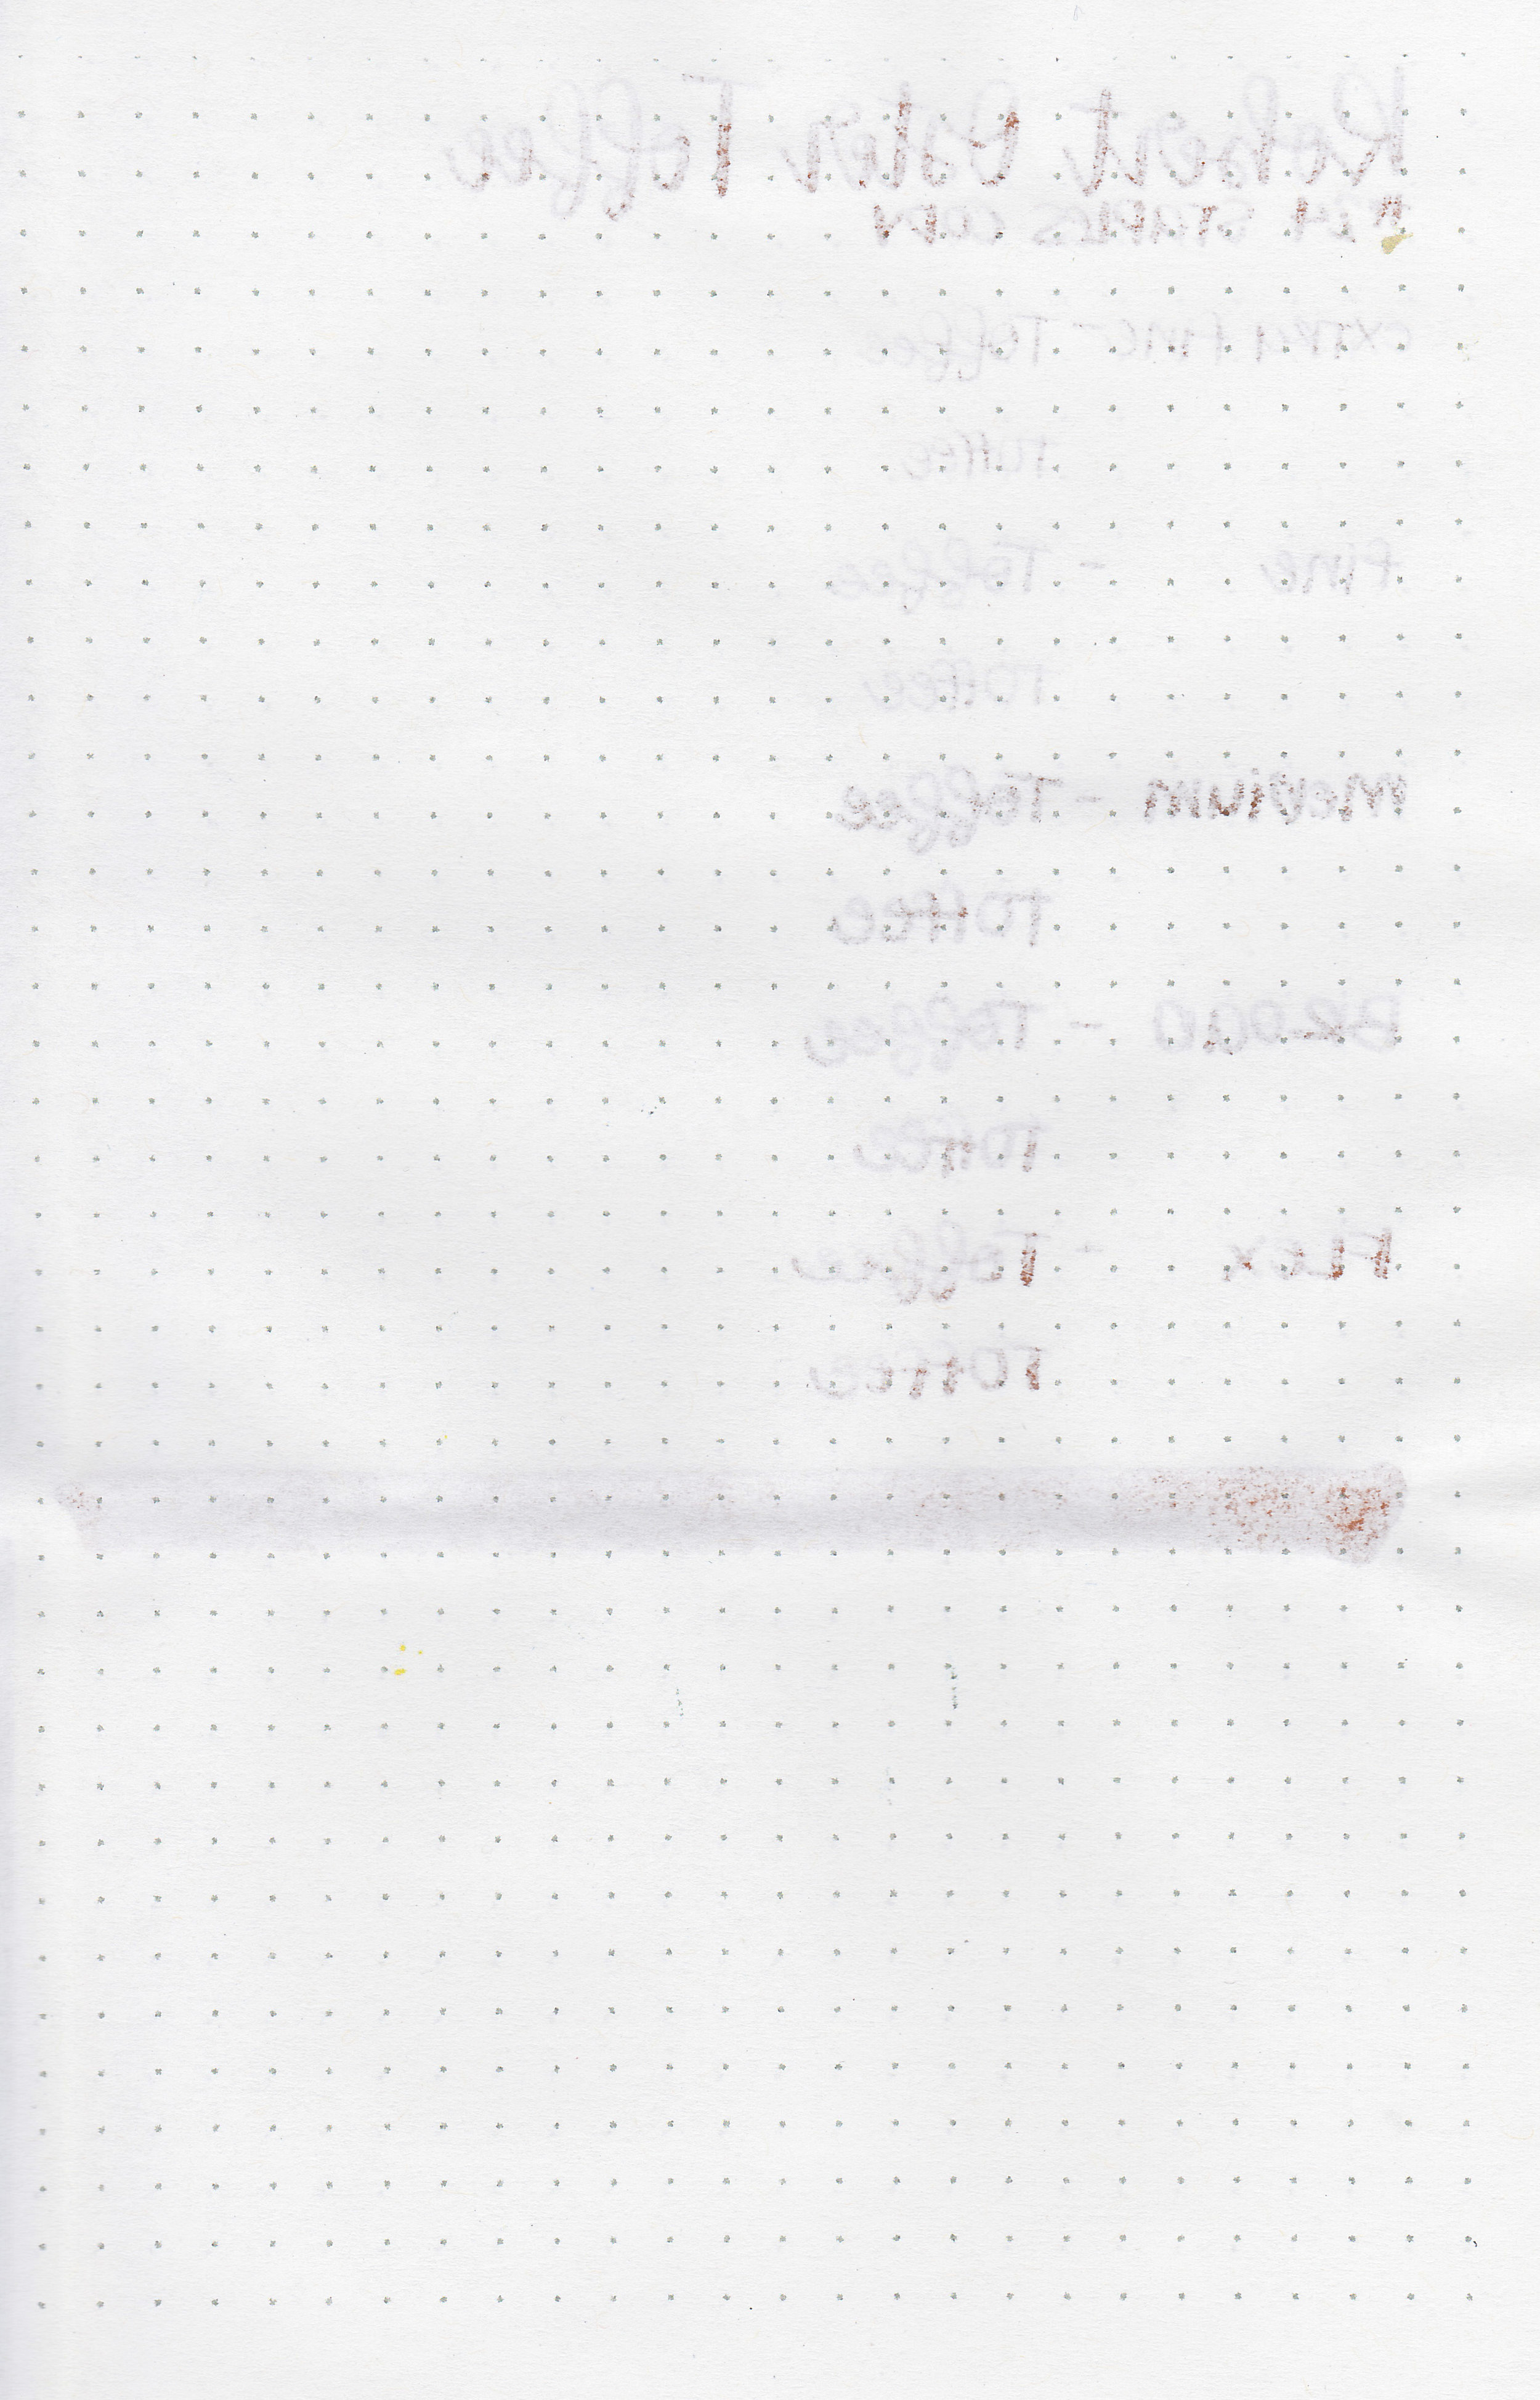 Robert Oster Toffee
#24 STAPLES COPY
EXTRA fine - Toffee
Toffee
fine - Toffee
Toffee
Medium - Toffee
Toffee
BROAD - Toffee
Toffee
FLEX - Toffee
Toffee